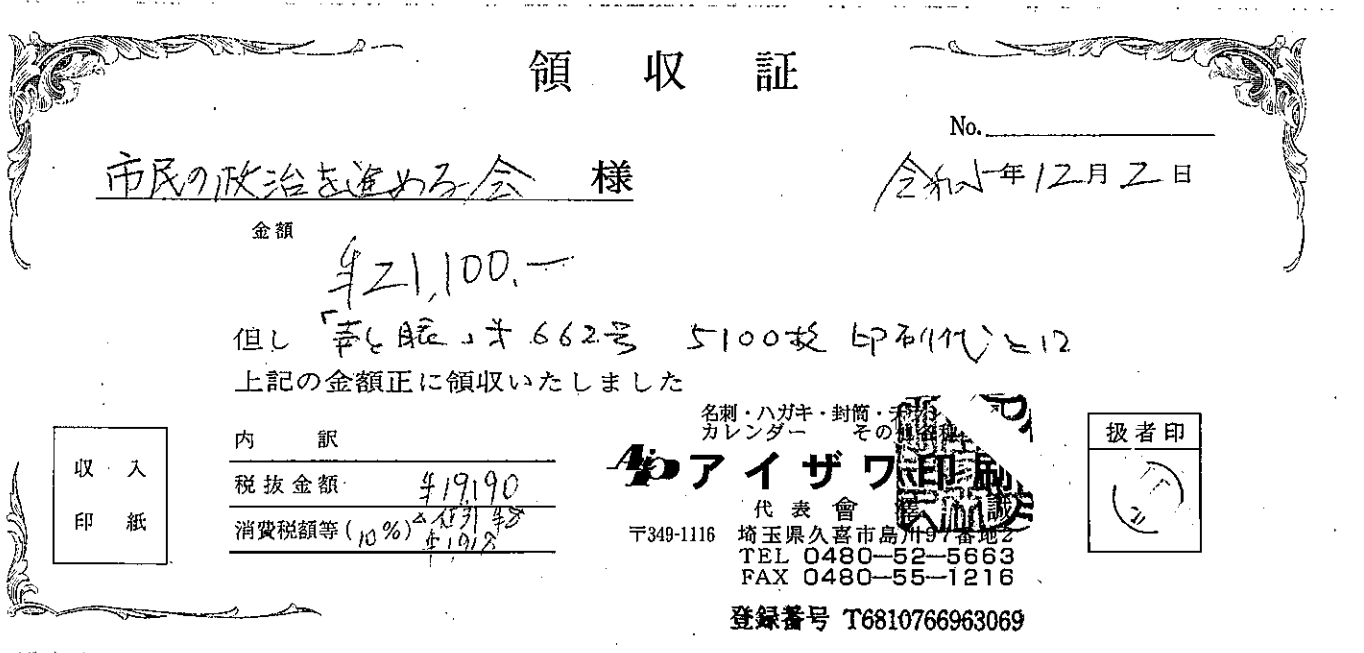 領収証
No.
市民の政治を進める会 様
令和5年12月2日
金額
¥21,100.-
但し「声と眼」第662号 5100枚 印刷代として
上記の金額正に領収いたしました
収入
印紙
内訳
税抜金額 ¥19,190
消費税額等(10%) ¥1,918
値引 ¥8
名刺・ハガキ・封筒・チラシ
カレンダー その他各種
アイザワ印刷
代表 會澤 誠
〒349-1116 埼玉県久喜市島川97番地2
TEL 0480-52-5663
FAX 0480-55-1216
登録番号 T6810766963069
扱者印